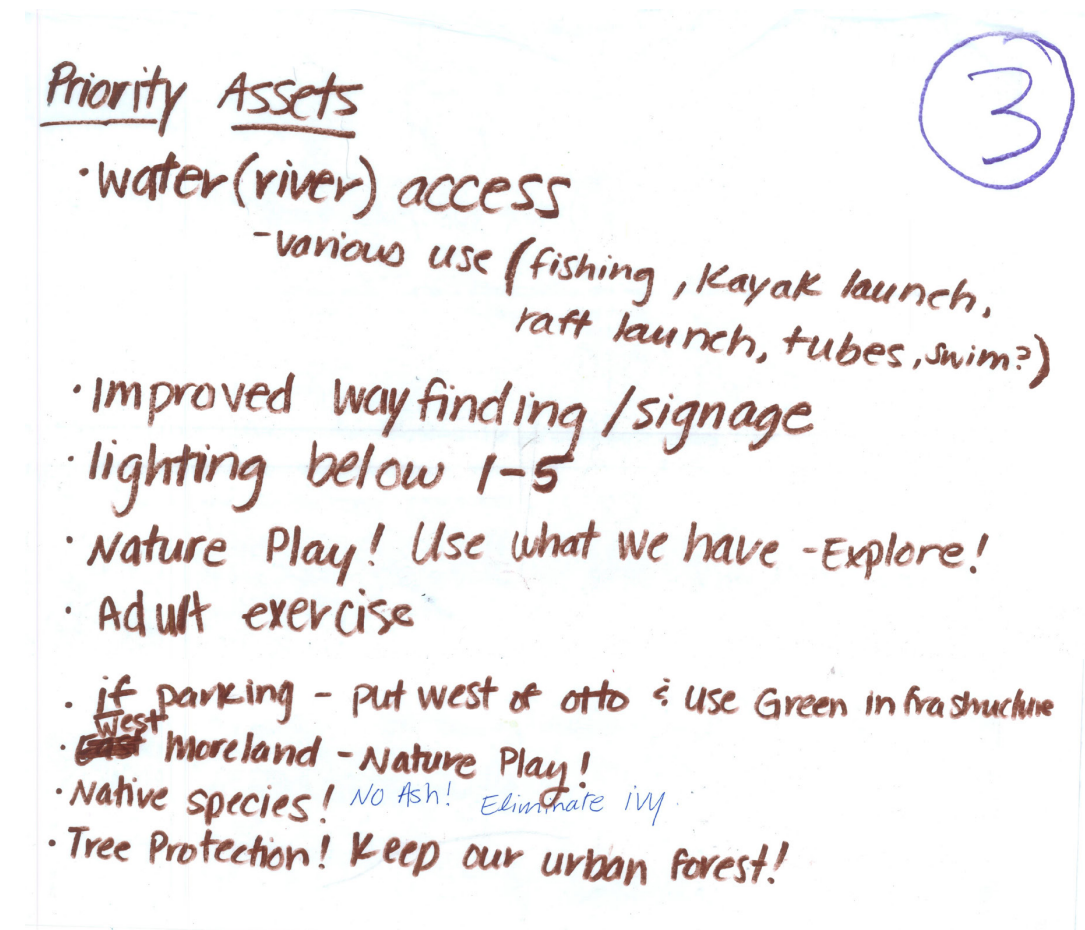 Priority Assets
3
· water (river) access
- various use (fishing, kayak launch,
raft launch, tubes, swim?)
· Improved wayfinding/signage
· lighting below I-5
· Nature Play! Use what we have - Explore!
· Adult exercise
· if parking - put west of otto & use Green infrastructure
West
· East Moreland - Nature Play!
· Native species! No Ash! Eliminate ivy.
· Tree Protection! Keep our urban forest!